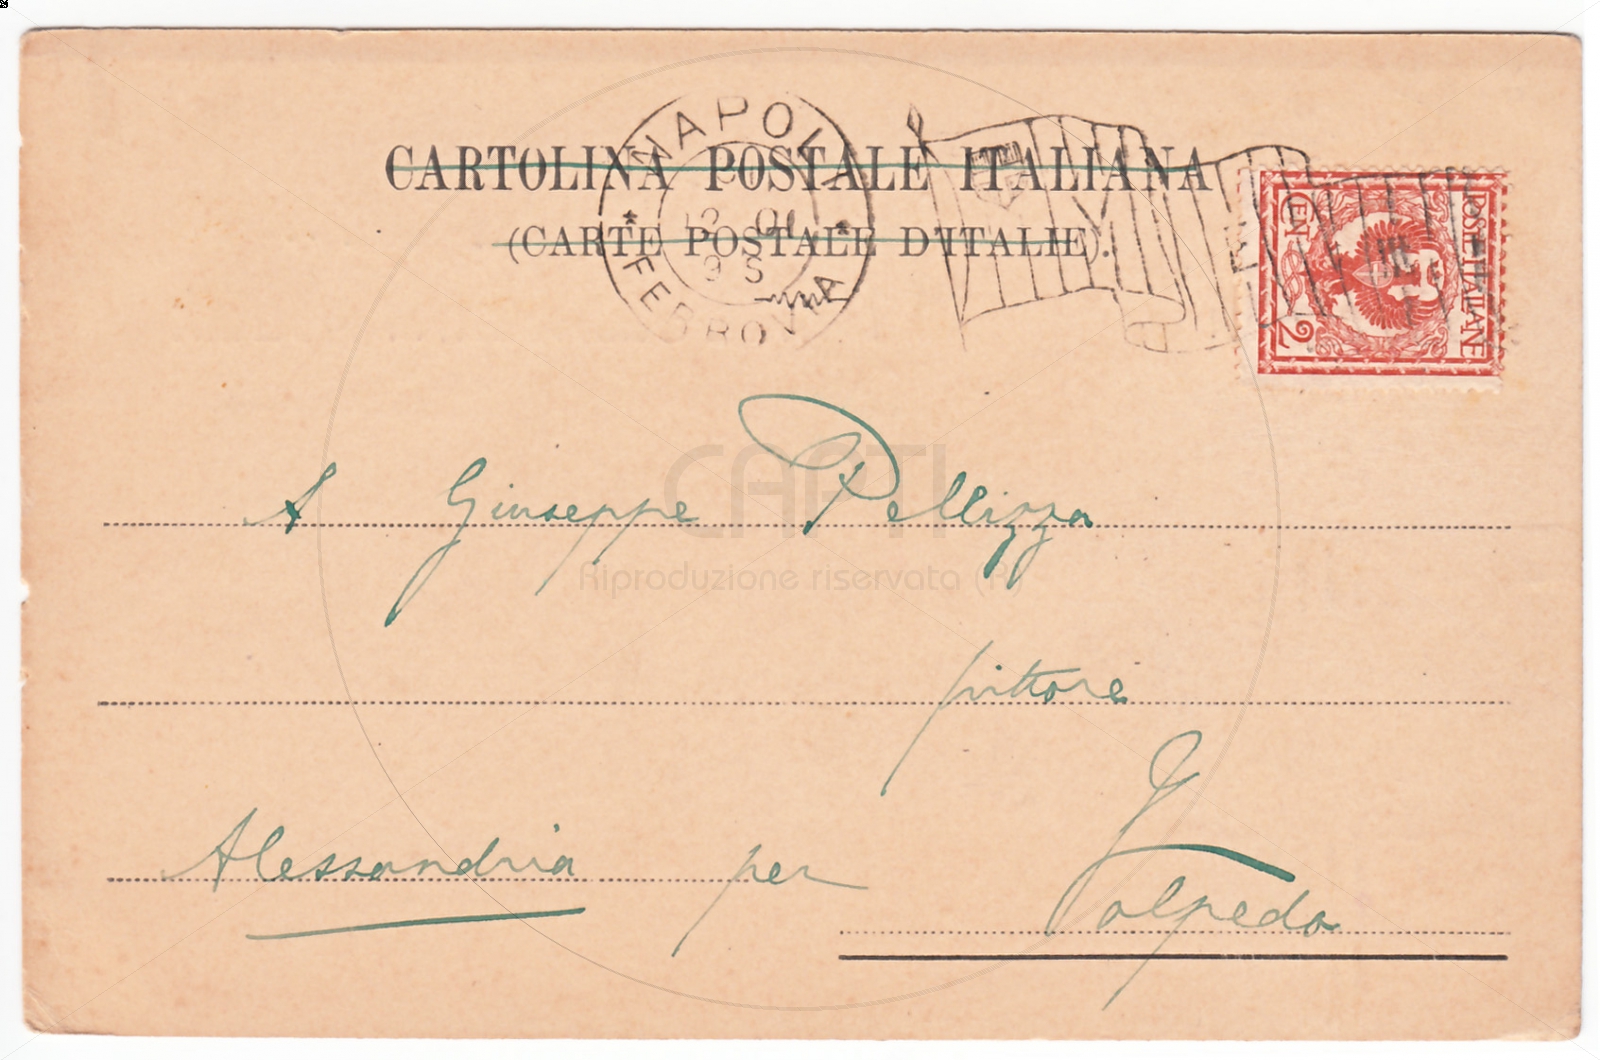 NAPOLI
CARTOLINA POSTALE ITALIANA
(CARTE POSTALE D'ITALIE).
12 01
9 S
FERROVIA
POSTE ITALIANE
CENT 2
A Giuseppe Pellizza
CAPTI
Riproduzione riservata (R)
pittore
Alessandria per
Volpedo